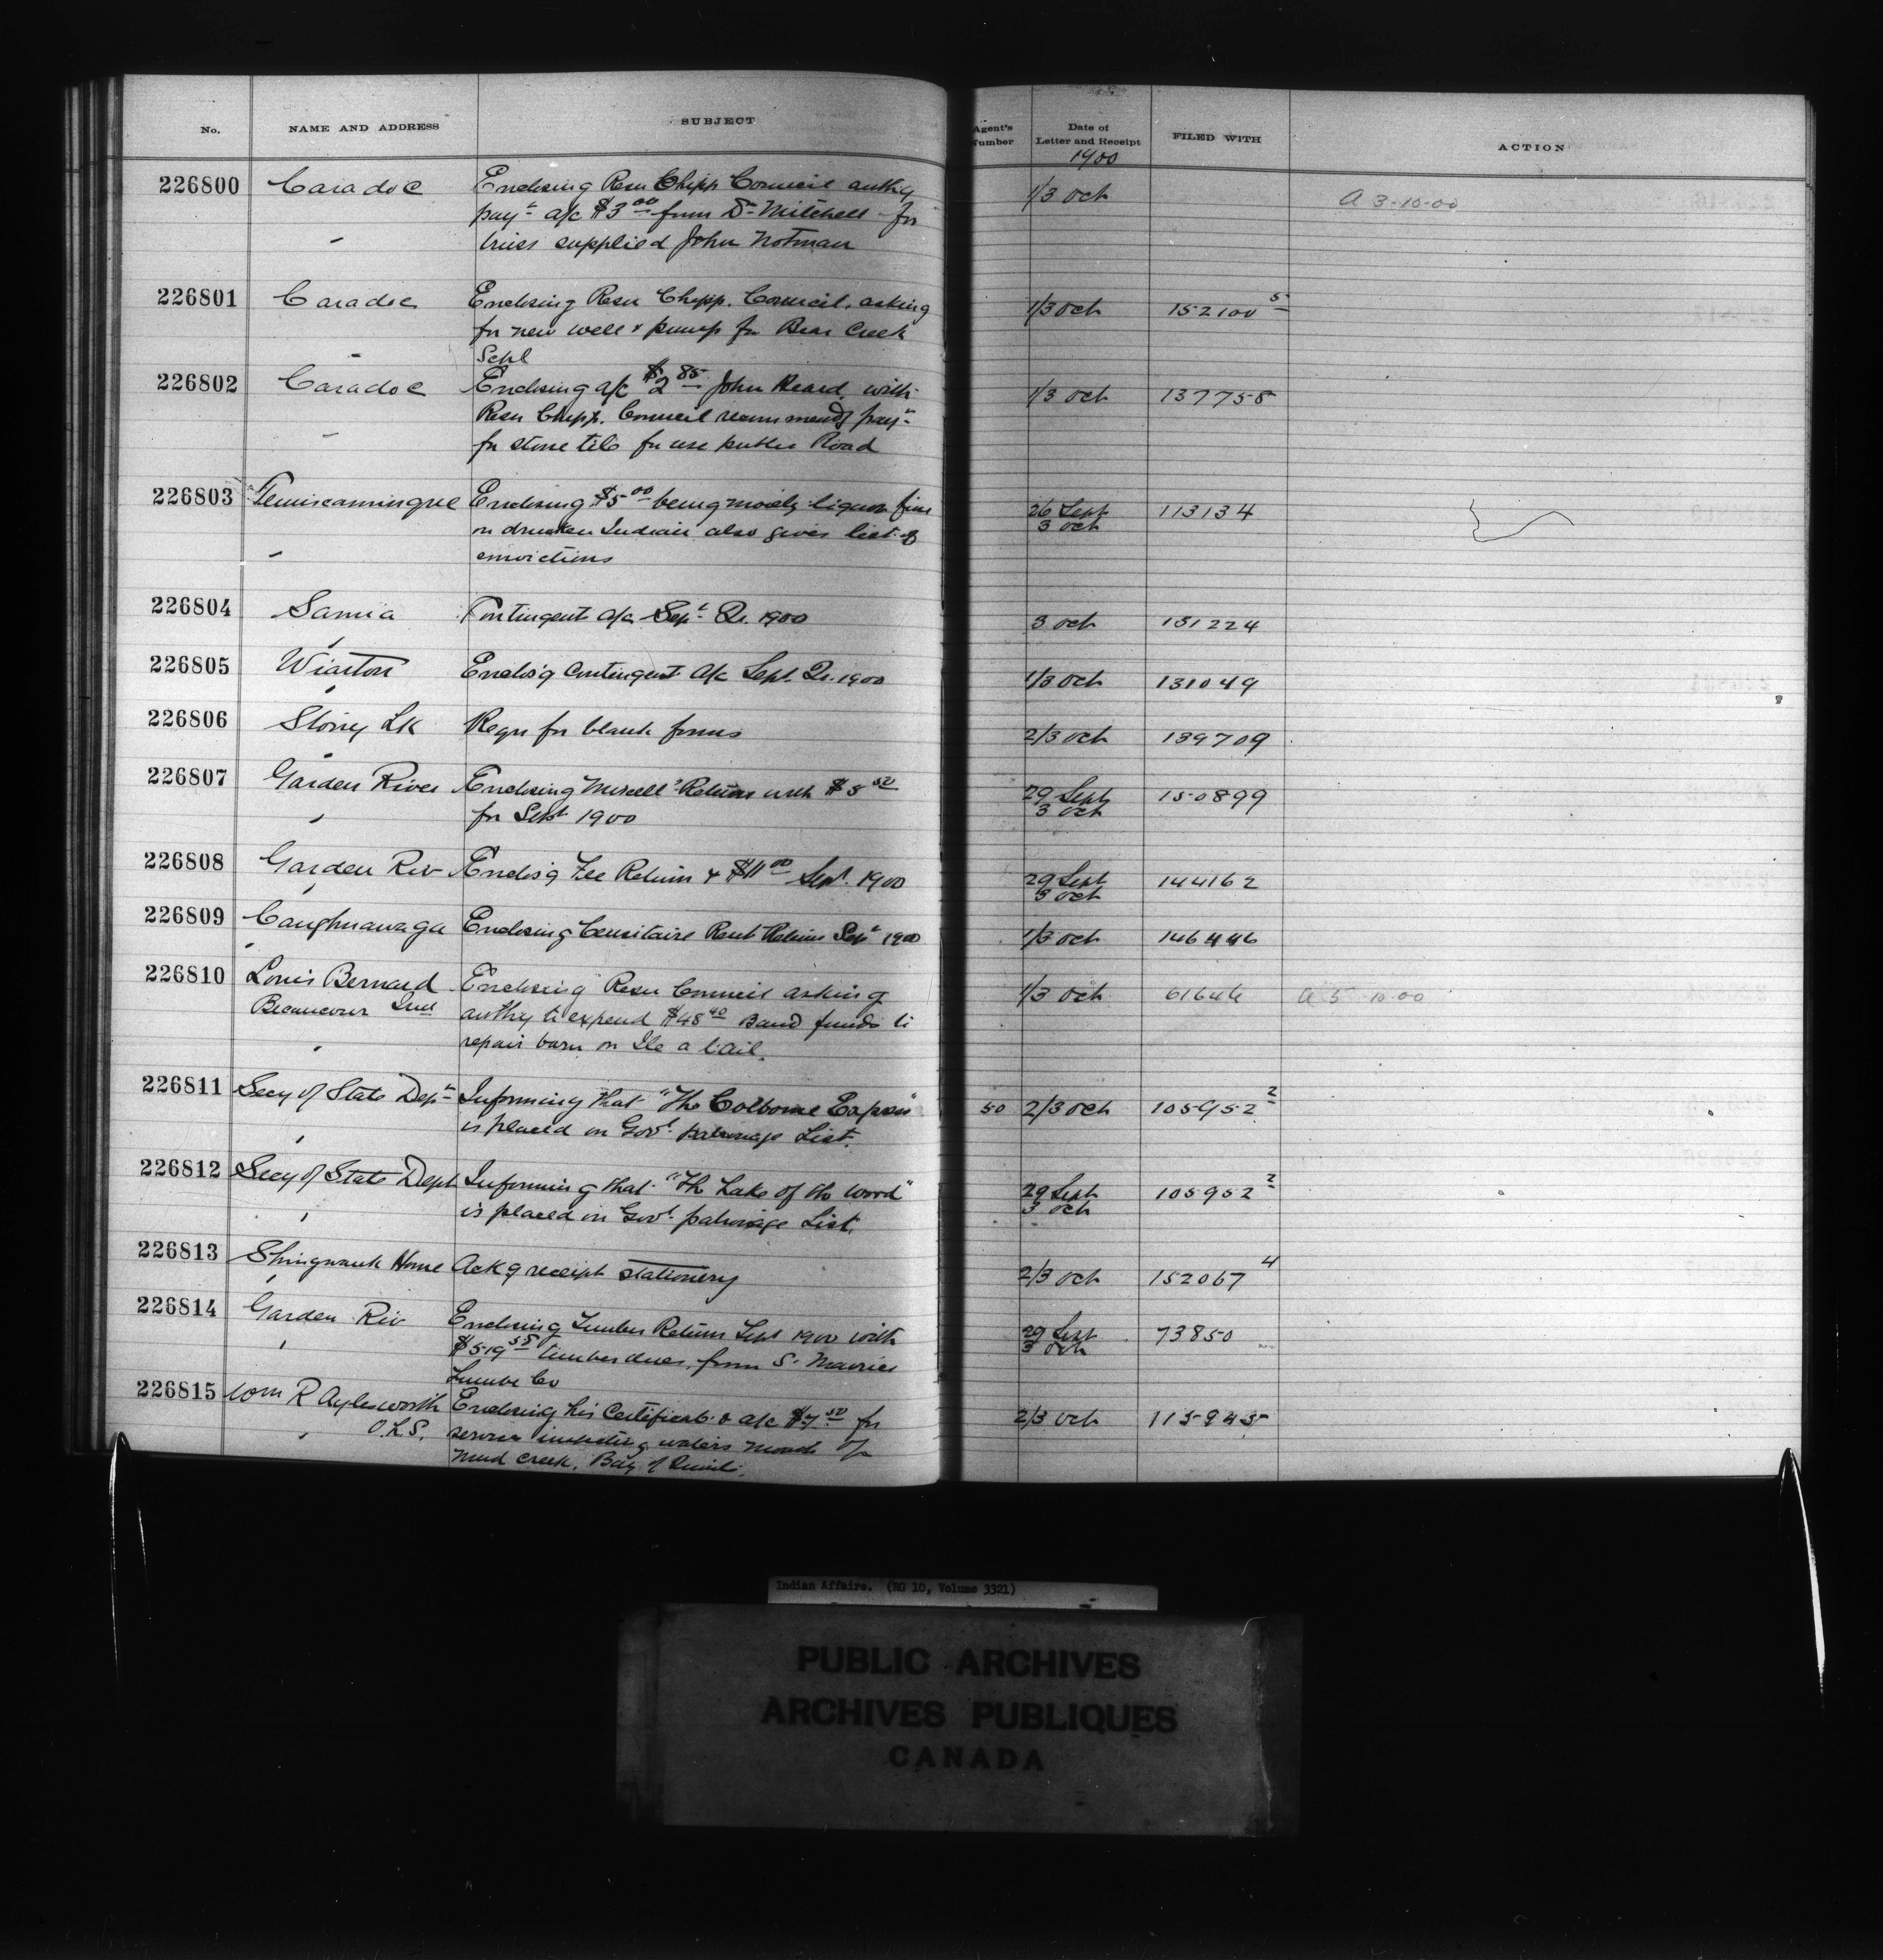 No. NAME AND ADDRESS SUBJECT Agent's Number Date of Letter and Receipt FILED WITH ACTION
1900
226800 Caradoc Enclosing Resn Chipp Council authy 1/3 Oct A 3-10-00
payt a/c $3 00 from Dr Mitchell for
truss supplied John Notman
226801 Caradoc Enclosing Resn Chipp. Council, asking 1/3 Oct 152100 5
for new well & pump for Bear Creek
Schl
226802 Caradoc Enclosing a/c $2 85 John Heard, with 1/3 Oct 137758
Resn Chipp. Council recommendg payt
for stone tile for use public Road
226803 Temiscamingue Enclosing $5 00 being moiety liquor fine 26 Sept 113134
on drunken Indian also gives list of 3 Oct
convictions
226804 Sarnia Contingent a/c Sept Qr. 1900 3 Oct 151224
226805 Wiarton Enclos'g Contingent a/c Sept. Qr. 1900 1/3 Oct 131049
226806 Stony Lk Reqn for blank forms 2/3 Oct 139709
226807 Garden River Enclosing Miscells Return with $5 50 29 Sept 150899
for Sept 1900 3 Oct
226808 Garden Riv Enclos'g Fee Return & $11 00 Sept. 1900 29 Sept 144162
3 Oct
226809 Caughnawaga Enclosing Censitaire Rent Return Sept 1900 1/3 Oct 146446
226810 Louis Bernard Enclosing Resn Council asking 1/3 Oct 61646 A 5-10-00
Becancour authy to expend $48 40 Band funds to
repair barn on Ile a l'ail.
226811 Secy of State Dept Informing that "The Colborne Express" 50 2/3 Oct 105952 2
is placed on Govt. patronage List.
226812 Secy of State Dept Informing that "The Lake of the Wood" 29 Sept 105952 2
is placed on Govt. patronage List. 3 Oct
226813 Shingwauk Home Ackg receipt stationery 2/3 Oct 152067 4
226814 Garden Riv Enclosing Timber Return Sept 1900 with 29 Sept 73850
$519 55 timber dues from St. Maurice 3 Oct
Lumber Co
226815 Wm R Aylesworth Enclosing his Certificate & a/c $7 50 for 2/3 Oct 115943
O.L.S. services inspecting waters mouth of
Mud Creek, Bay of Quinte.
Indian Affairs. (RG 10, Volume 3321)
PUBLIC ARCHIVES
ARCHIVES PUBLIQUES
CANADA